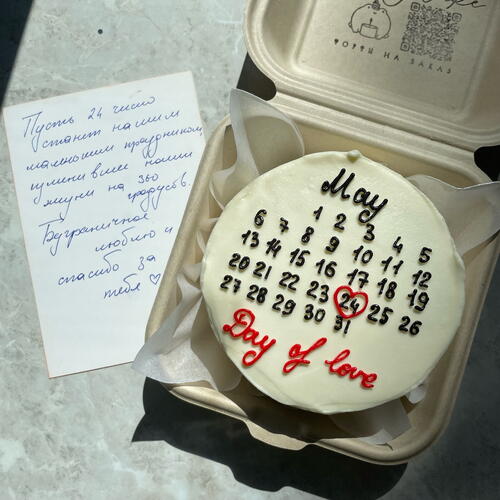 Пусть 24 число
станет нашим
маленьким праздником,
изменившим наши
жизни на 360
градусов.
Безграничное
люблю и
спасибо за
тебя ♡
ТОРТЫ НА ЗАКАЗ
May
1 2 3 4 5
6 7 8 9 10 11 12
13 14 15 16 17 18 19
20 21 22 23 24 25 26
27 28 29 30 31
Day of love